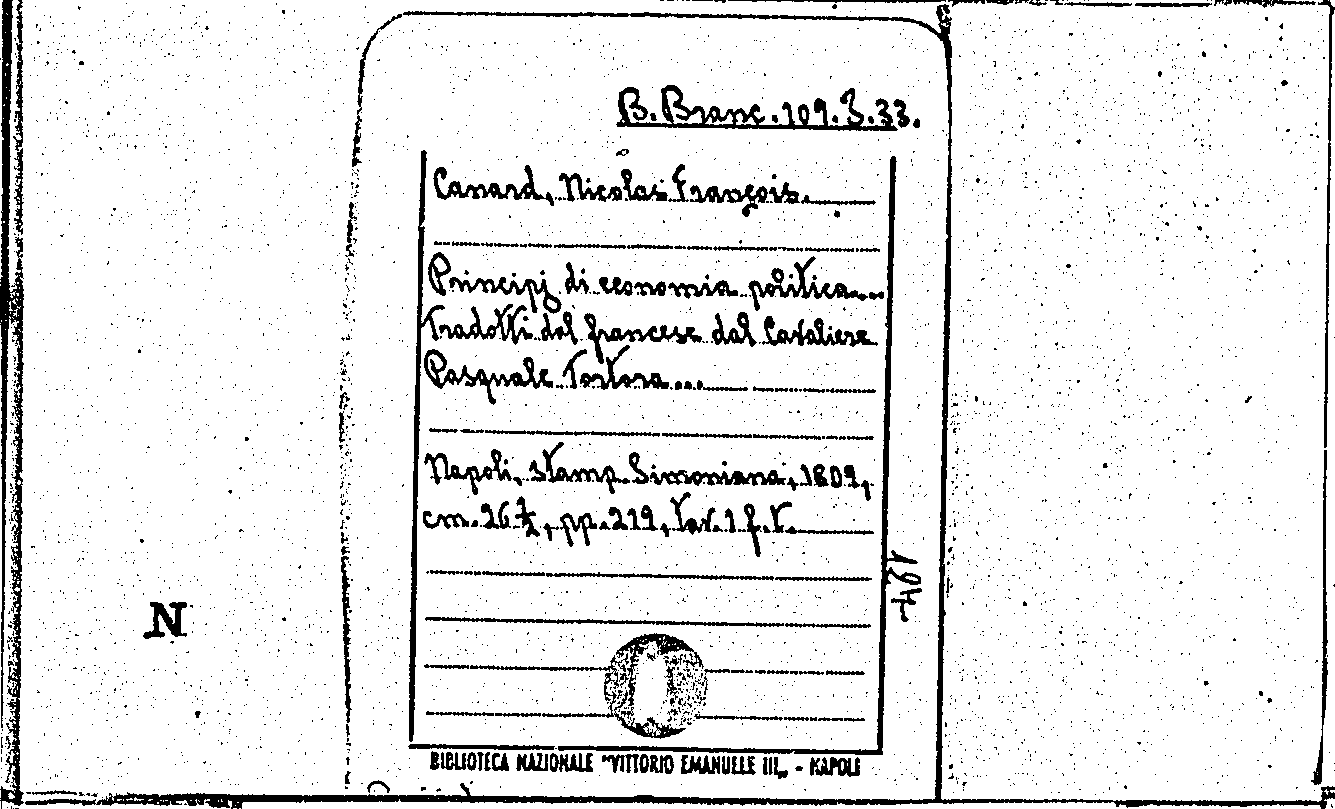 B. Branc. 109. J. 33.
Canard, Nicolas François.
Principj di economia politica...
Tradotti dal francese dal Cavaliere
Pasquale Tortora...
Napoli, stamp. Simoniana, 1809,
cm. 26 ½, pp. 219, tav. 1 f. t.
N
BIBLIOTECA NAZIONALE "VITTORIO EMANUELE III„ - NAPOLI